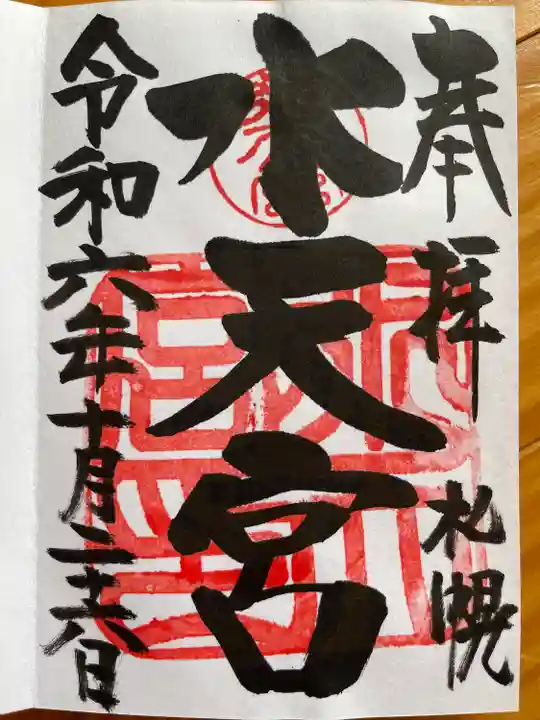 奉拝 札幌
水天宮
令和六年十月二十八日